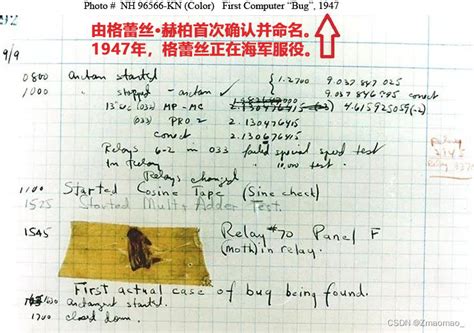 Photo # NH 96566-KN (Color) First Computer “Bug”, 1947
由格蕾丝•赫柏首次确认并命名。
1947年，格蕾丝正在海军服役。
92
9/9
0800 antan started
1000 " stopped - antan ✓ { 1.2700 9.037 847 025
9.037 846 995 conect
13"uc (032) MP-MC 4.615925059(-2)
(033) PRO 2 2.130476415
conect 2.130676415
Relays 6-2 in 033 failed special speed test
in Relay 10,000 test.
Relays changed
1100 Started Cosine Tape (Sine check)
1525 Started Mult+Adder Test.
1545 Relay #70 Panel F
(moth) in relay.
First actual case of bug being found.
antangent started.
1700 closed down.
Relay
CSDN @Zmaomao_